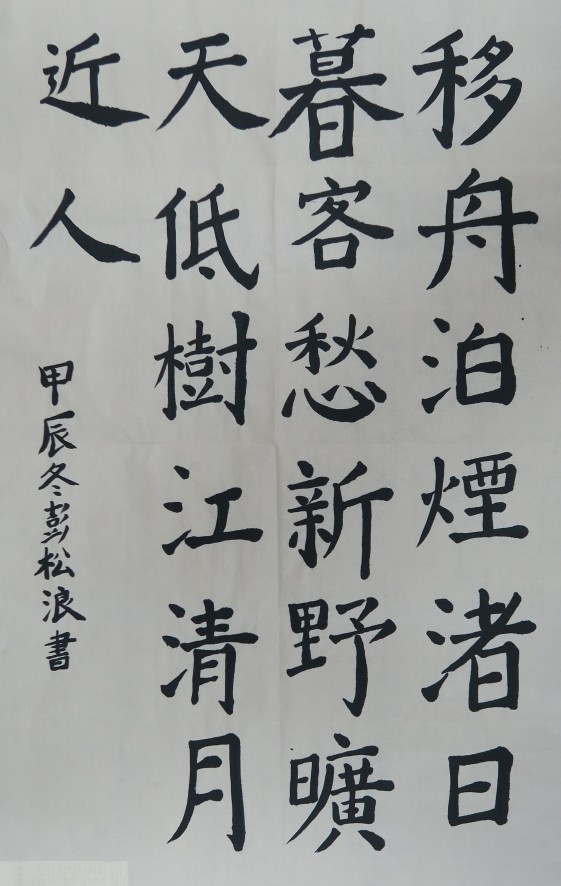 移舟泊煙渚日
暮客愁新野曠
天低樹江清月
近人
甲辰冬彭松浪書